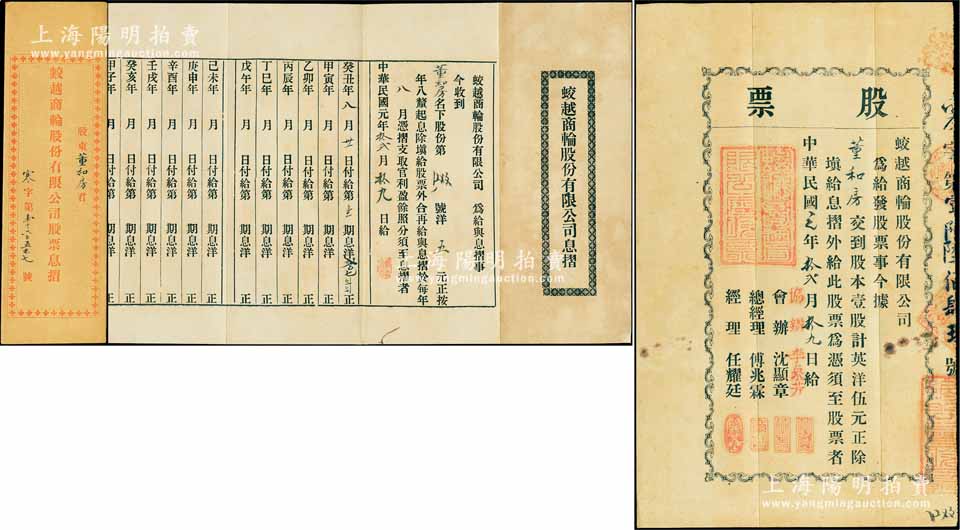 上海陽明拍賣
www.yangmingauction.com
蛟越商輪股份有限公司息摺
蛟越商輪股份有限公司 為給與息摺事
今收到
董和房名下股份第 號洋 五 元正按
年八釐起息除塡給股票外合再給與息摺於每年
八 月憑摺支取官利盈餘照分須至息摺者
中華民國元年拾弍月 拾九 日給
癸丑年 八 月 廿 日付給第 期息洋 正
甲寅年 月 日付給第 期息洋 正
乙卯年 月 日付給第 期息洋 正
丙辰年 月 日付給第 期息洋 正
丁巳年 月 日付給第 期息洋 正
戊午年 月 日付給第 期息洋 正
己未年 月 日付給第 期息洋 正
庚申年 月 日付給第 期息洋 正
辛酉年 月 日付給第 期息洋 正
壬戌年 月 日付給第 期息洋 正
癸亥年 月 日付給第 期息洋 正
甲子年 月 日付給第 期息洋 正
股東董和房君
蛟越商輪股份有限公司股票息摺
寒字第 號
上海陽明拍賣
www.yangmingauction.com
上海陽明拍賣
www.yangmingauction.com
字第壹 陸佰肆 號
股票
蛟越商輪股份有限公司
為給發股票事今據
董和房 交到股本壹股計英洋伍元正除
塡給息摺外給此股票為憑須至股票者
中華民國元年拾弍月 拾九日給
協辦 李
會辦 沈顯章
總經理 傅兆霖
經理 任耀廷
上海陽明拍賣
www.yangmingauction.com